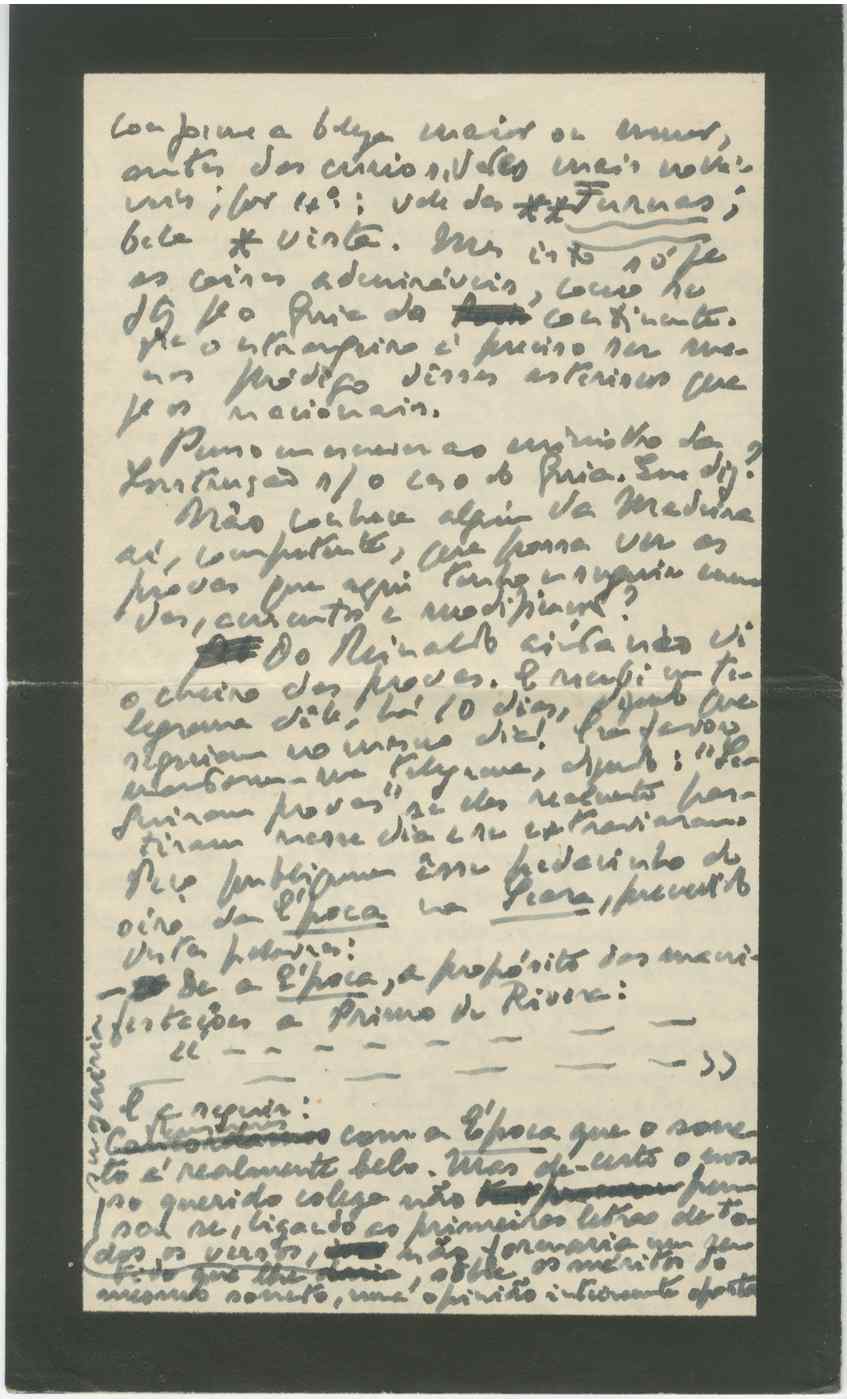 conforme a beleza maior ou menor,
antes das curiosidades mais notá-
veis; por ex.º: vale das ** Furnas;
bela * vista. Mas isto só pª
as coisas admiráveis, como se
fêz pª o Guia do continente.
Pª o estrangeiro é preciso ser me-
nos pródigo dêsses asteriscos que
pª os nacionais.
Penso em escrever ao ministro da
Instrução s/ o caso do Guia. Que diz?
Não conhece alguém da Madeira
aí, competente, que possa ver as
provas que aqui tenho e sugerir emen-
das, aumentos e modificações?
Do Reinaldo ainda não vi
o cheiro das provas. E recebi um te-
legrama dêle, há 10 dias, dizendo que
seguiam no mesmo dia! Era favor
mandarem-me telegrama, dizendo: "Se-
guiram provas" se elas realmente par-
tiram nesse dia e se extraviaram.
Peço publiquem êsse pedacinho de
oiro da Época na Seara, precedido
destas palavras:
— De a Época, a propósito das mani-
festações a Primo de Rivera:
« — — — — — — — —
— — — — — — »
E a seguir:
com a Época que o sone-
to é realmente belo. Mas de-certo o nos-
so querido colega não pen-
sou se, ligando as primeiras letras de to-
dos os versos, não formaria um sen-
tido que lhe, sobre os méritos do
mesmo soneto, uma opinião inteiramente oposta